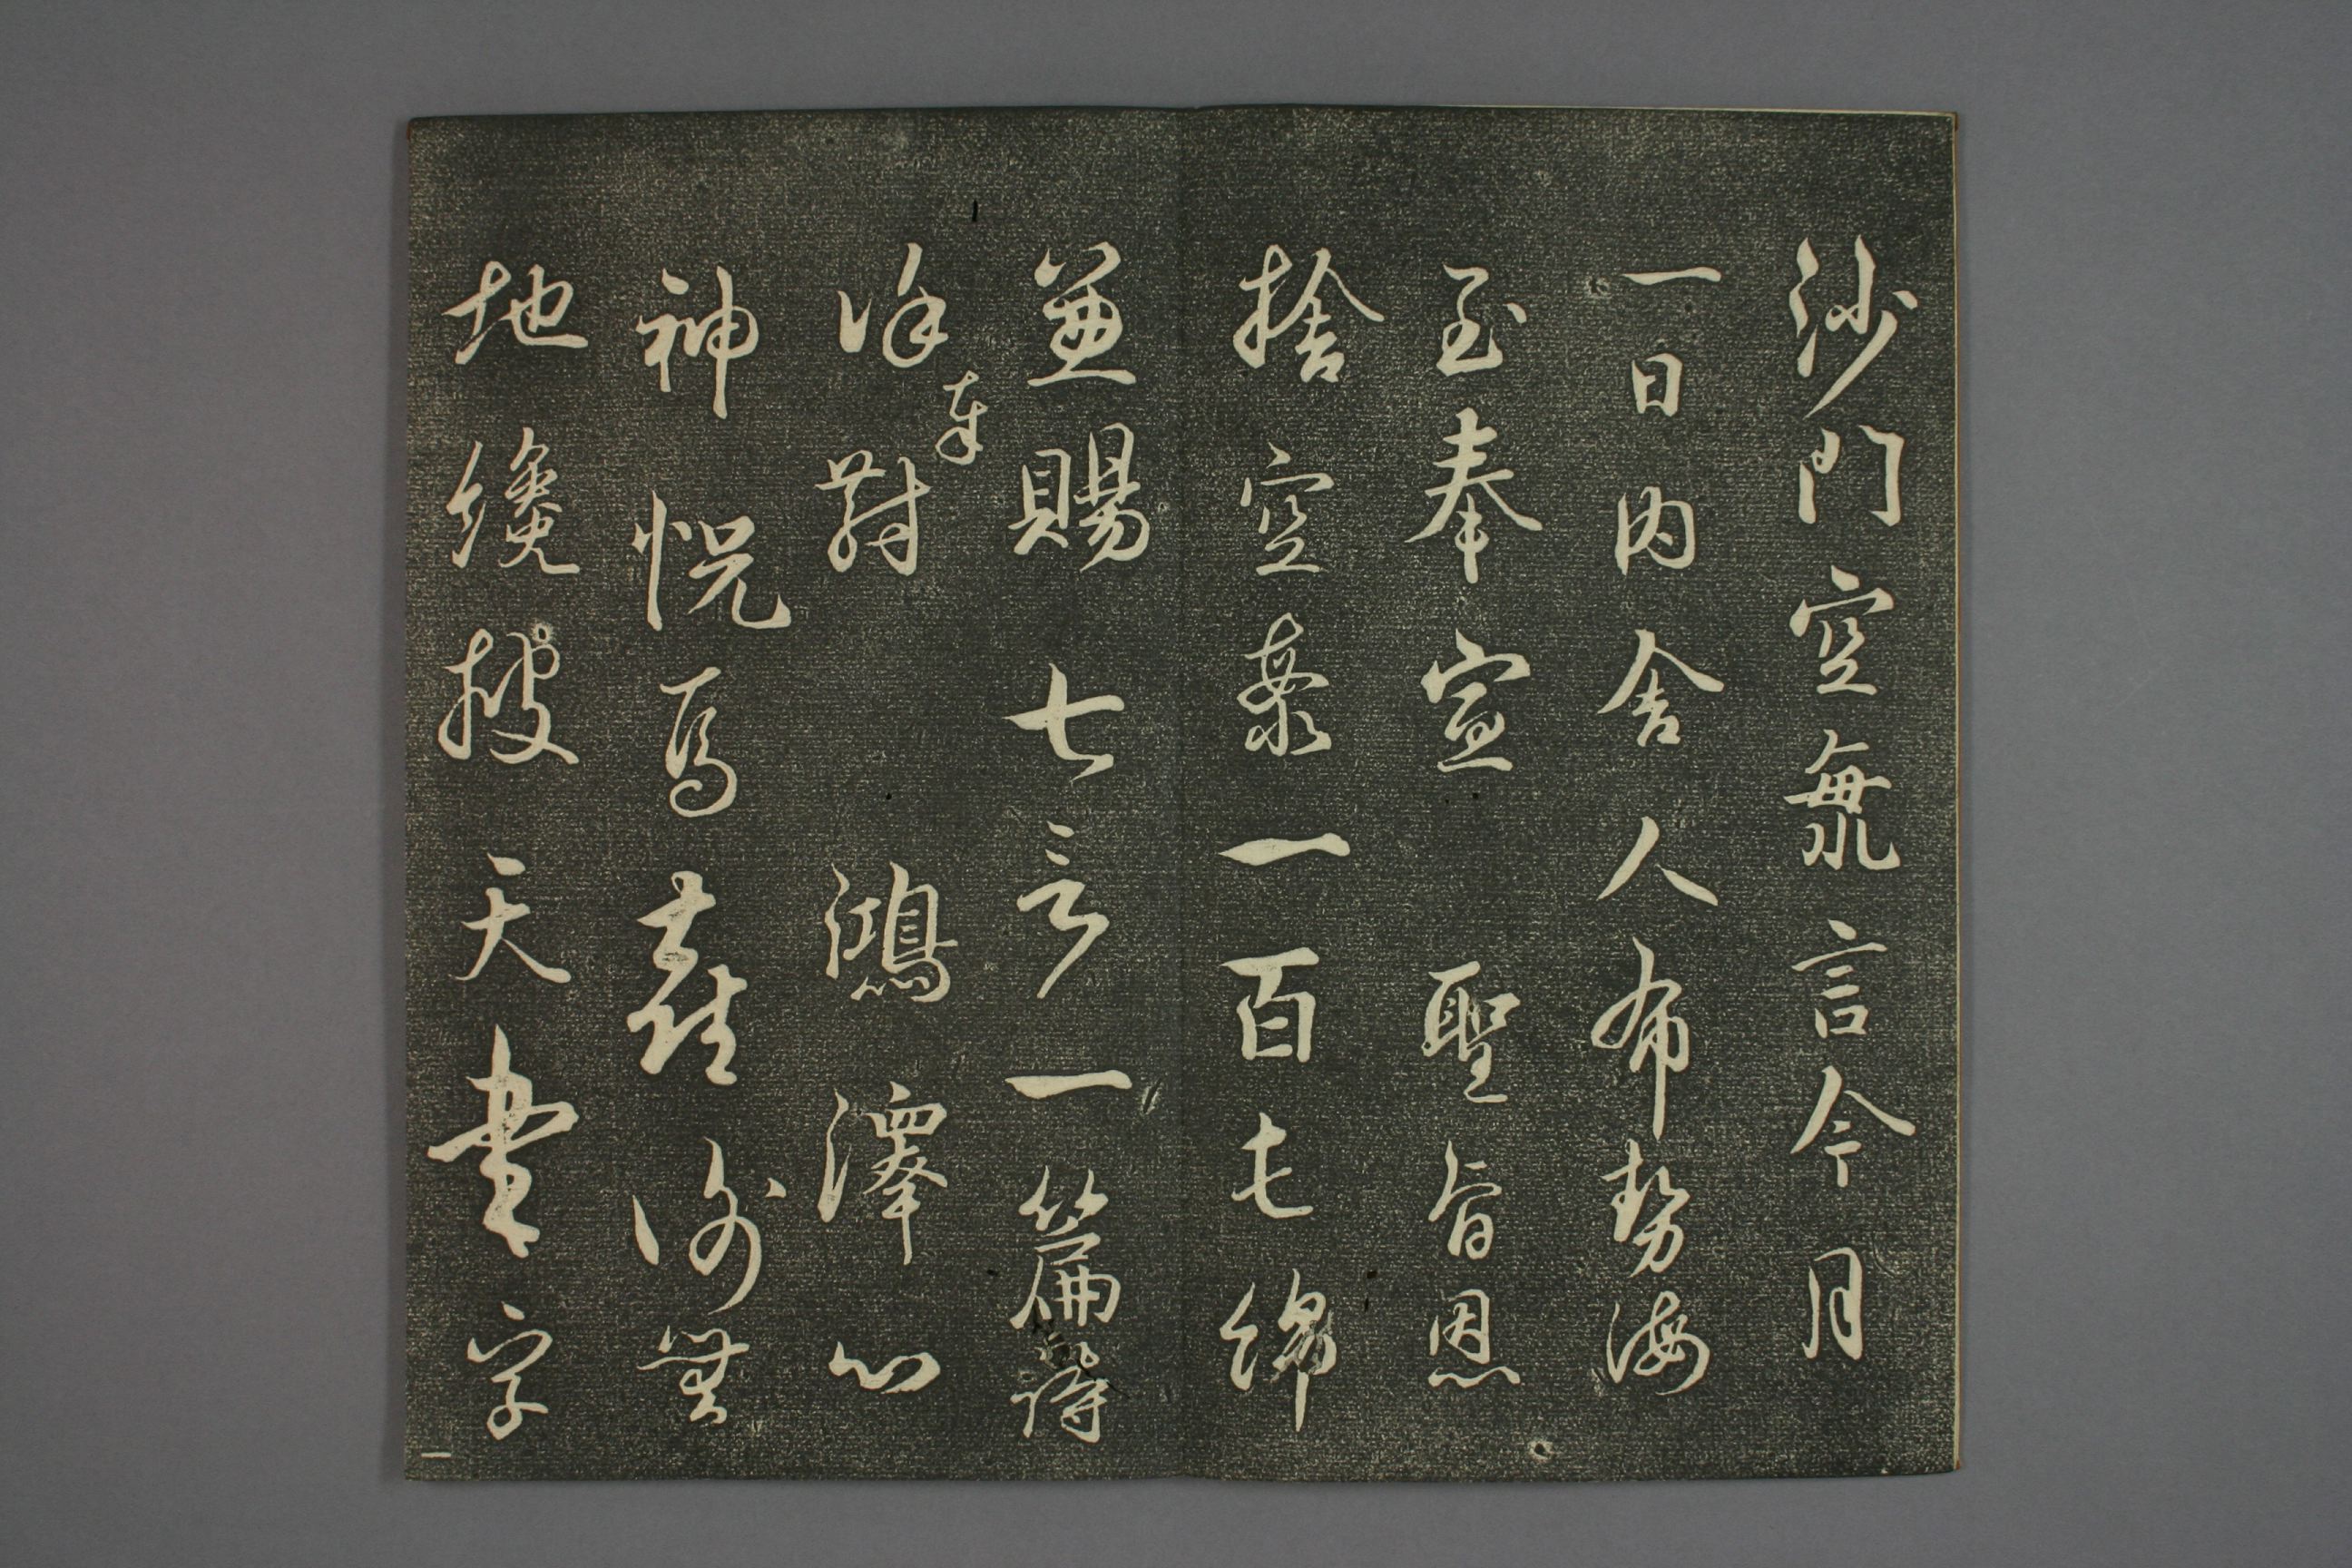 沙門空海言今月
一日内舎人布勢海
至奉宣聖旨恩
捨空海一百屯綿
並賜七言一篇詩
奉對鴻澤心
神怳焉喜無
地纔披天書字